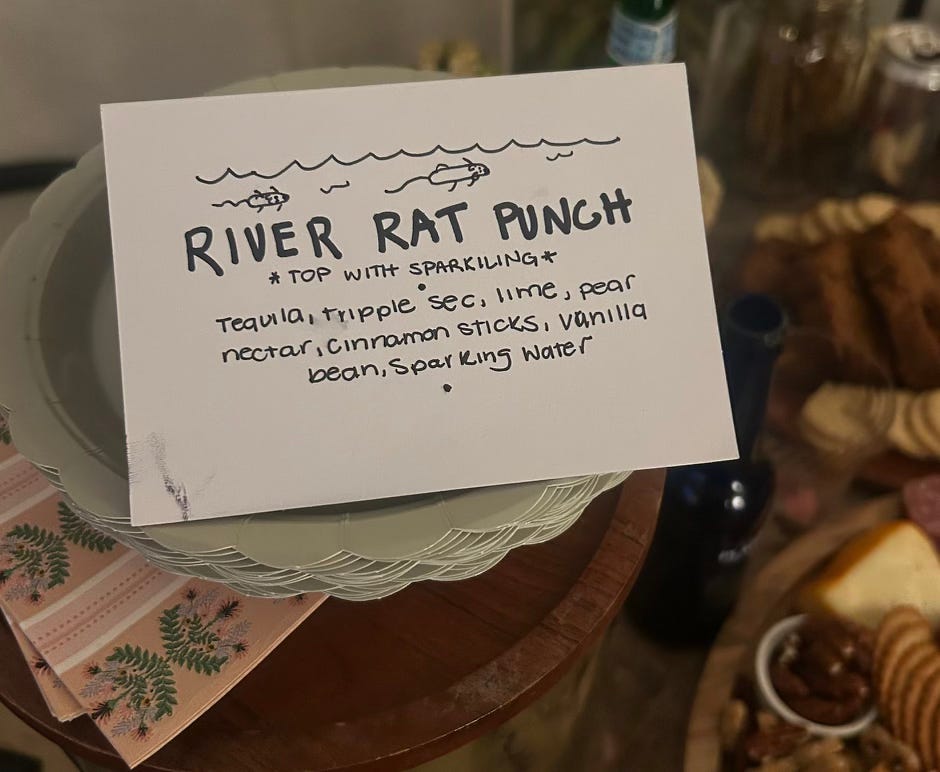 RIVER RAT PUNCH
*TOP WITH SPARKILING*
Tequila, tripple sec, lime, pear
nectar, cinnamon sticks, vanilla
bean, Sparkling Water